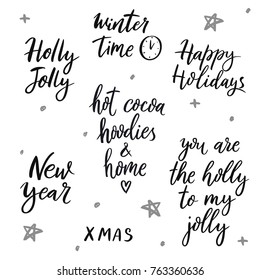 winter
time
Holly
Jolly
Happy
Holidays
hot cocoa
hoodies
&
home
New
year
you are
the holly
to my
jolly
XMAS
shutterstock.com · 763360636